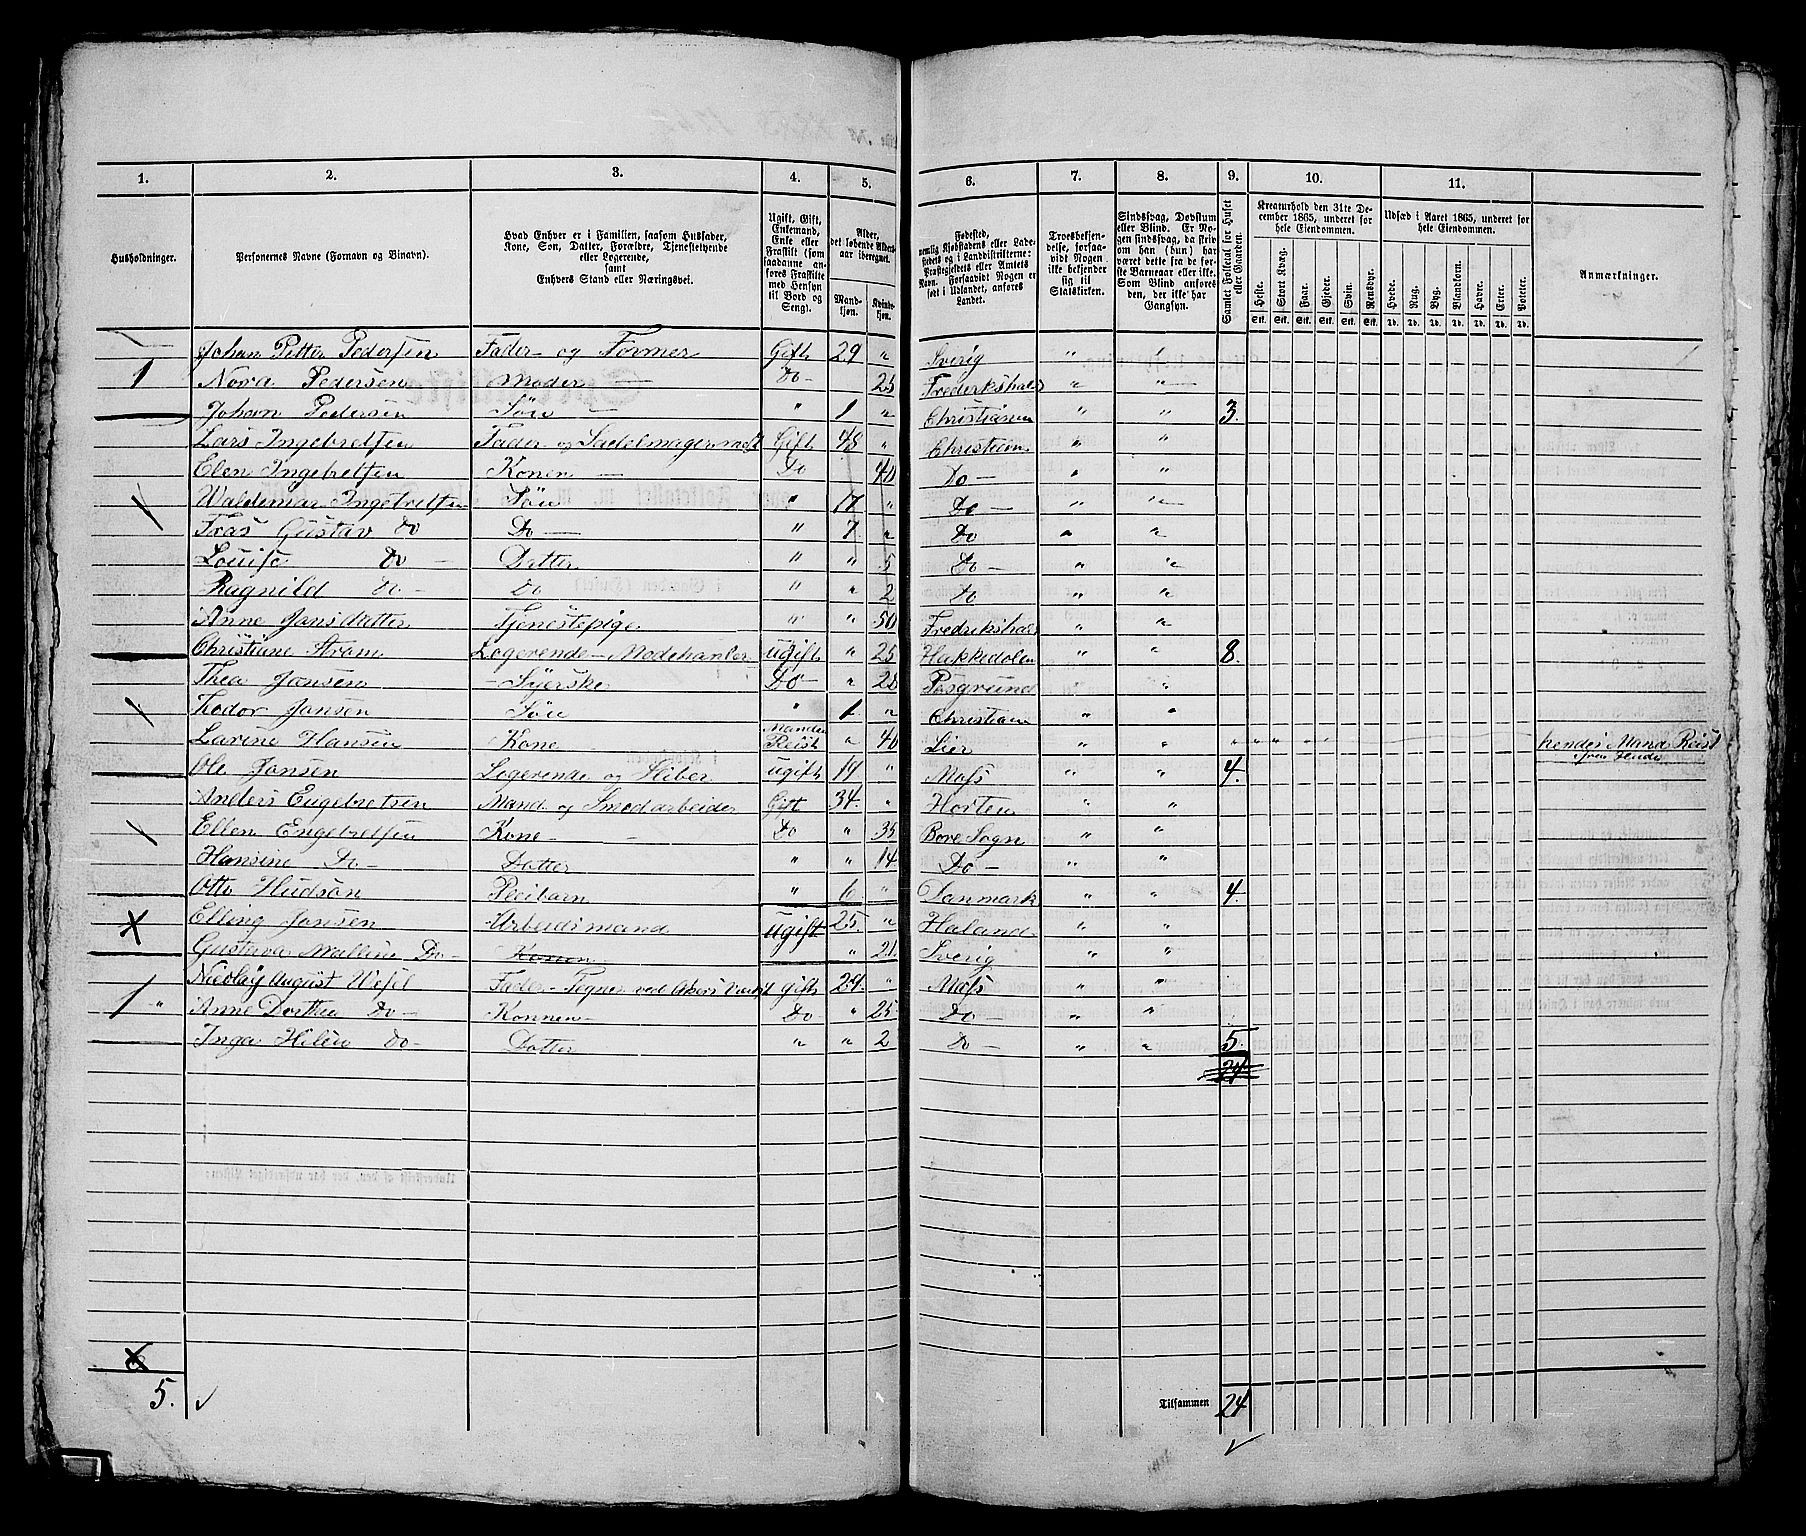 1. 2. 3. 4. 5. 6. 7. 8. 9. 10. 11.
Husholdninger. Personernes Navne (Fornavn og Binavn). Hvad Enhver er i Familien, saasom Husfader, Kone, Søn, Datter, Forældre, Tjenestetyende eller Logerende, samt Enhvers Stand eller Næringsvei. Ugift, Gift, Enkemand, Enke eller Fraskilt (som saadanne anføres Fraskilte med Hensyn til Bord og Seng). Alder, det løbende Alders-aar iberegnet. Mand-kjøn. Kvinde-kjøn. Fødested, nemlig Kjøbstadens eller Ladestedets og i Landdistrikterne: Præstegjeldets eller Amtets Navn. Forsaavidt Nogen er født i Udlandet, anføres Landet. Troesbekjendelse, forsaavidt Nogen ikke bekjender sig til Statskirken. Sindssvag, Døvstum eller Blind. Er Nogen sindssvag, da skriv om han (hun) har været dette fra de første Barneaar eller ikke. Som Blind anføres den, der ikke har Gangsyn. Samlet Folketal for Huset eller Gaarden. Kreaturhold den 31te December 1865, underet for hele Eiendommen. Udsæd i Aaret 1865, underet for hele Eiendommen. Anmærkninger.
Heste. Stort Kvæg. Faar. Gjeder. Svin. Rensdyr. Hvede. Rug. Byg. Blandkorn. Havre. Erter. Poteter.
Stk. Stk. Stk. Stk. Stk. Stk. Td. Td. Td. Td. Td. Td. Td.
Johan Petter Pedersen Fader og Former Gift 29 " Sverig " "
1 Nora Pedersen Moder Do 25 Fredrikshald " "
Johan Pedersen Sön " 1 " Christiania " " 3.
Lars Ingebretsen Fader og Sadelmagermest Gift 48 " Christiania " "
Elen Ingebretsen Konen Do 40 Do " "
Waldemar Ingebretsen Sön " 17 " Do " "
Fras Gustav Do Do " 7 " Do " "
Louise Do Detter " " 5 Do " "
Ragnild Do Do " " 2 Do " "
Anne Jansdatter Tjenestepige " " 50 Fredrikshald " "
Christiane Strøm Logerende Modehanler ugift " 25 Hakkedalen " " 8.
Thea Jansen Syerske Do " 28 Posgrund " "
Jansen Sön " 1 " Christiania " "
Larine Hansen Kone Manden Reist " 40 Lier " " hendes Mand Reist
Ole Jansen Logerende og Sliber ugift 19 " Mofs " " 4.
Anders Engebretsen Mand og Smedarbeider Gift 34 " Horten " "
Ellen Engebretsen Kone Do " 35 Bore Sogn " "
Hansine Do Dotter " " 14 Do " "
Otto Hudson Pleibarn " 6 " Danmark " " 4.
X Elling Jansen Arbeidsmand ugift 25 " Haland " "
Gustava Malline Do Konen " 21 Sverig " "
Nicolay August Wesel Fader Tegner ved Akers Værkst gift 29 " Mofs " "
1 " Anne Dorthea Do Konnen Do " 25 Do " "
Inga Helen Do Dotter " " 2 Do " " 5.
24
5. Tilsammen 24